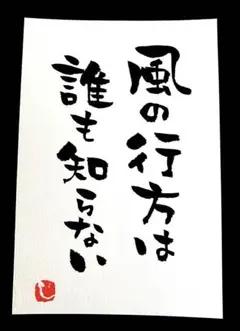 風の行方は
誰も知らない